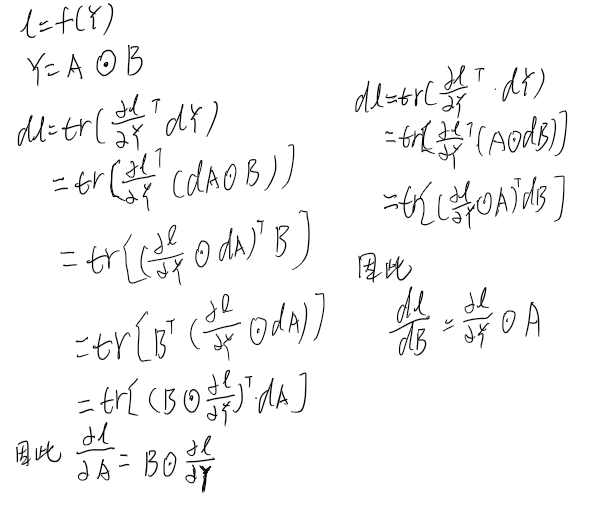 l=f(Y)
Y=A⊙B
dl=tr(∂l/∂Y^T dY)
=tr[∂l/∂Y^T (dA⊙B)]
=tr[(∂l/∂Y ⊙ dA)^T B]
=tr[B^T (∂l/∂Y ⊙ dA)]
=tr[(B⊙∂l/∂Y)^T·dA]
因此 ∂l/∂A = B⊙∂l/∂Y
dl=tr(∂l/∂Y^T · dY)
=tr[∂l/∂Y^T (A⊙dB)]
=tr[(∂l/∂Y⊙A)^T dB]
因此
dl/dB = ∂l/∂Y ⊙ A